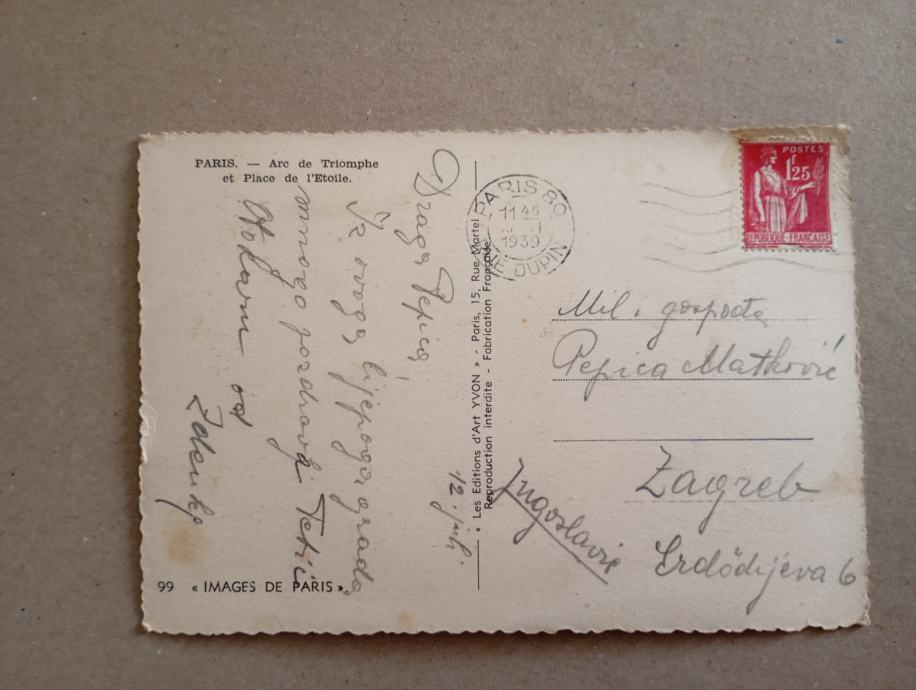 PARIS. — Arc de Triomphe
et Place de l'Etoile.
Draga Pepica,
Iz ovoga lijepoga grada
mnogo pozdrava Tetić
Otokarom od
Zdenke
12. juli.
99 « IMAGES DE PARIS ».
« Les Editions d'Art YVON » - Paris, 15, Rue Martel
Reproduction interdite - Fabrication Française
PARIS 80
11 45
1939
RUE DUPIN
POSTES
1f25
REPUBLIQUE-FRANÇAISE
Mil. gospođa
Pepica Matković
Zagreb
Jugoslavie
Erdödijeva 6